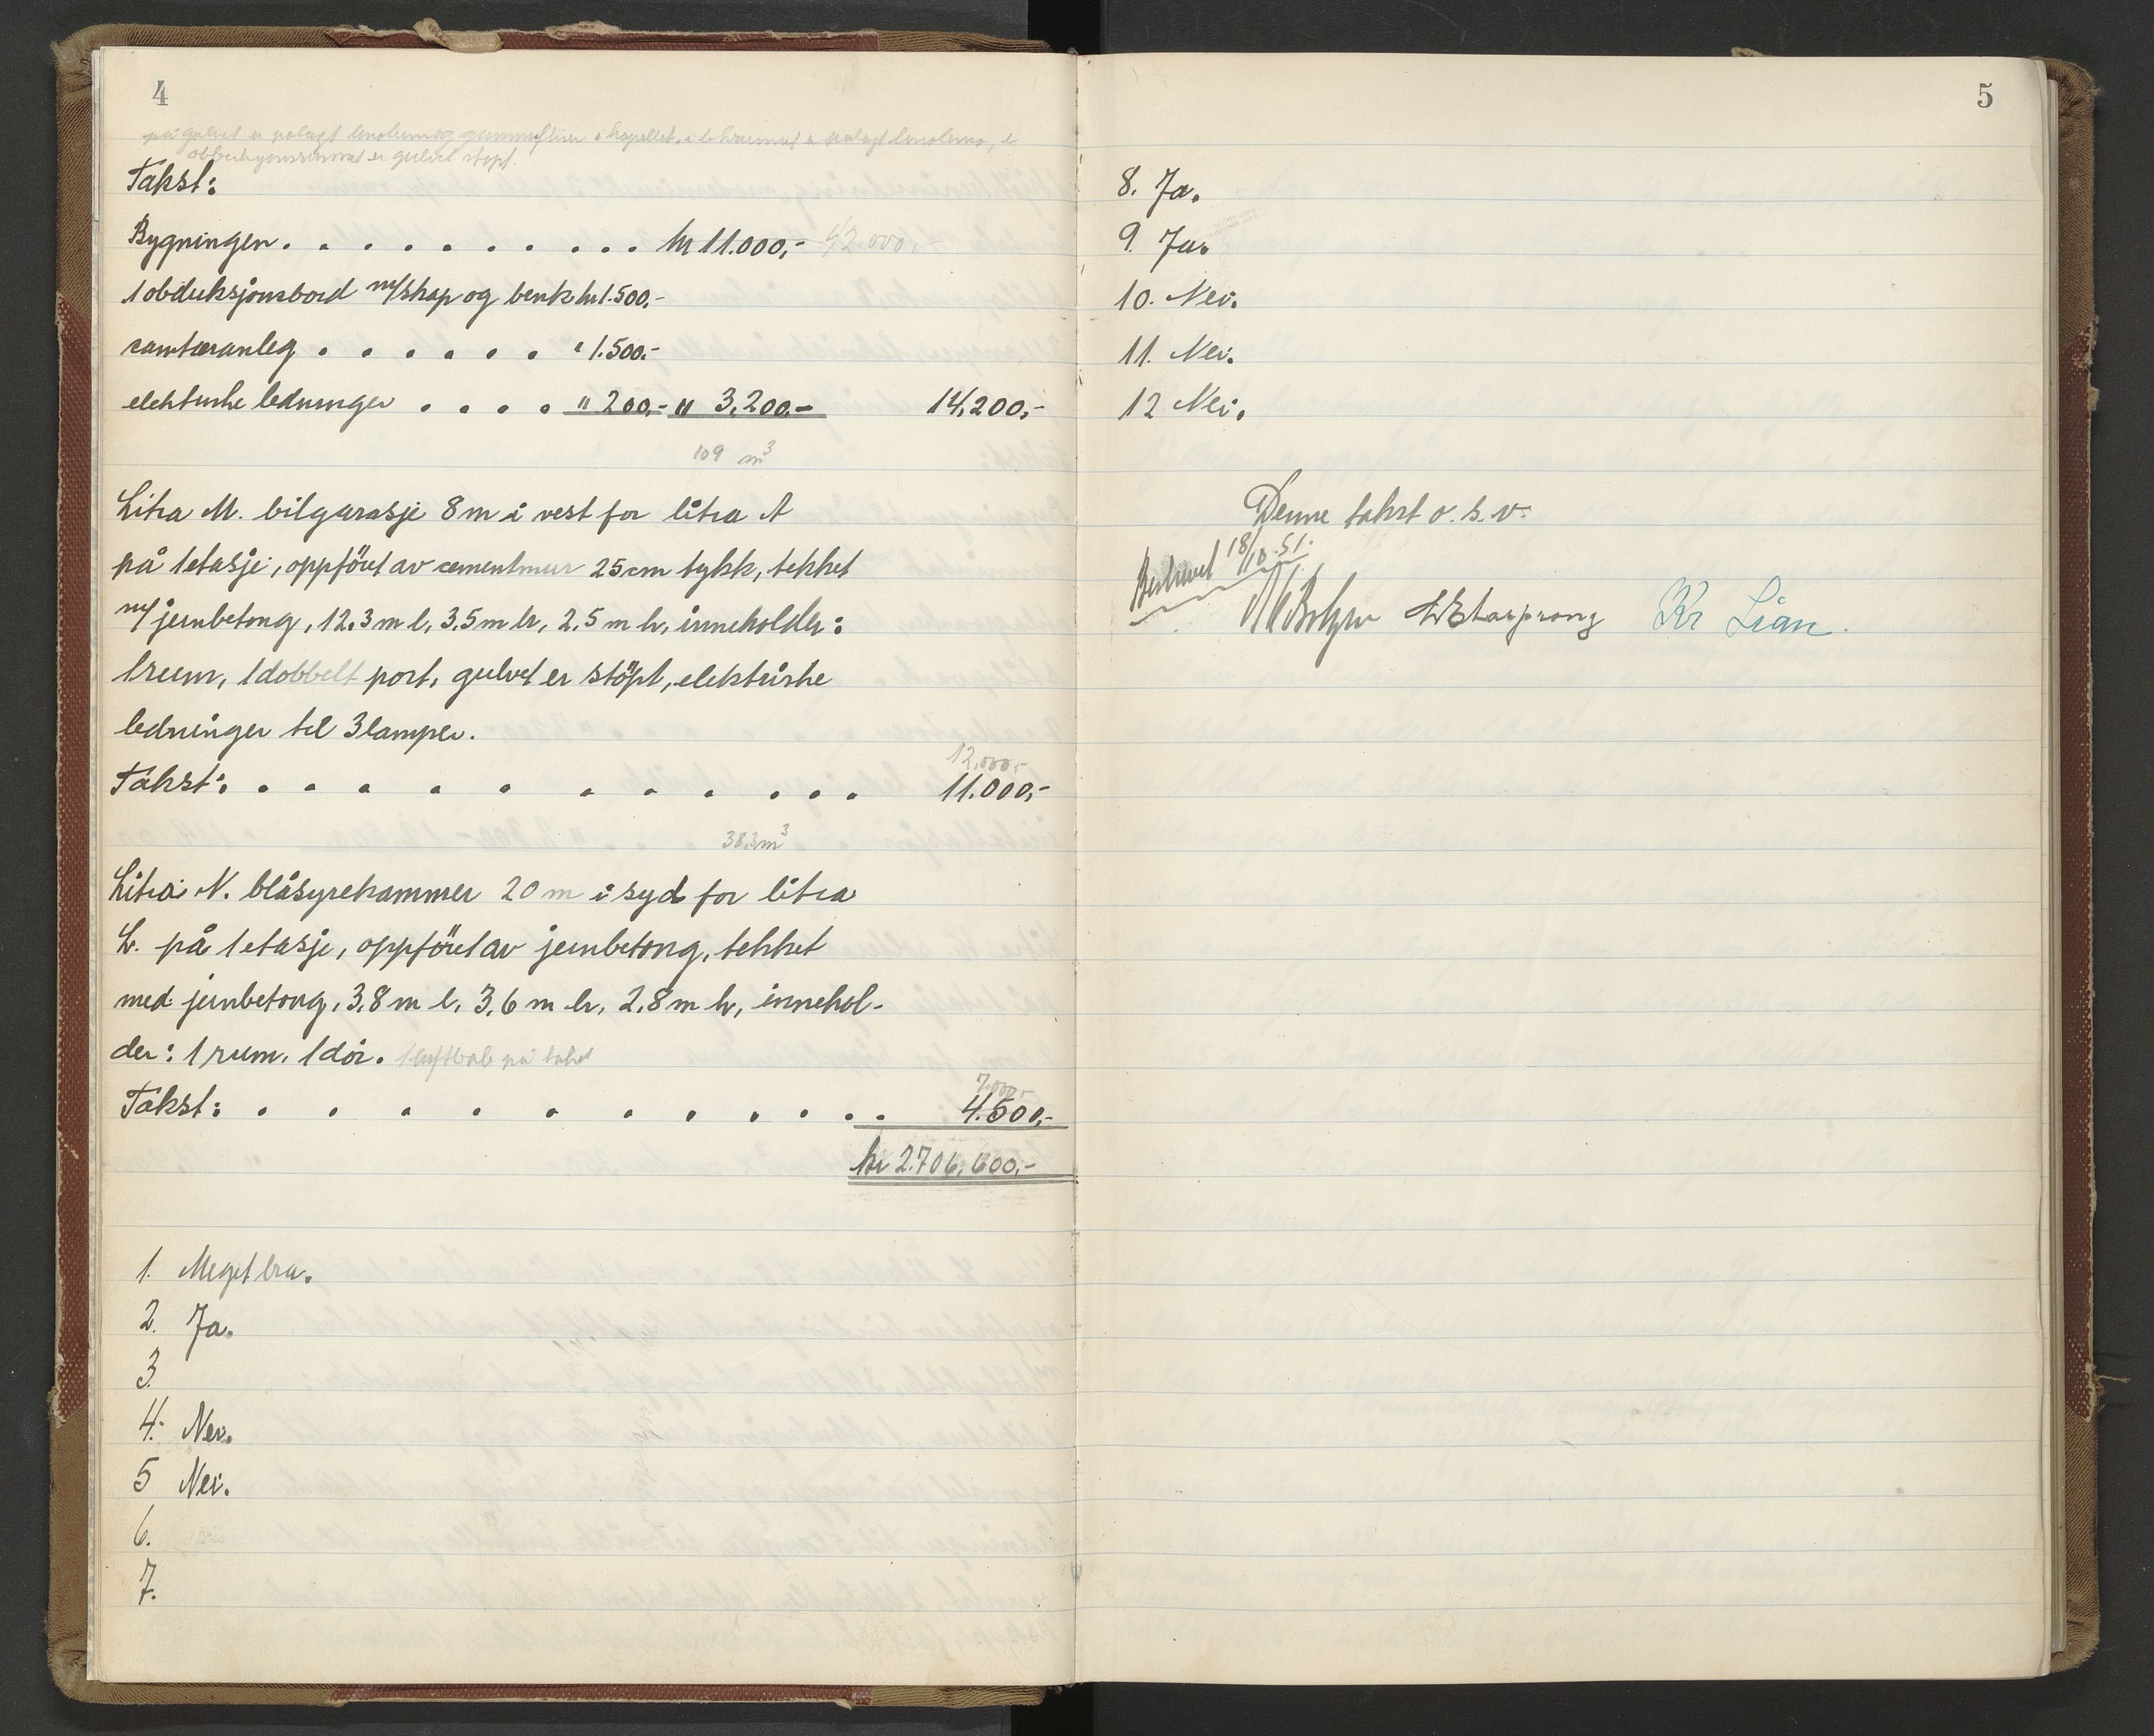 4
på gulvet er pålagt linoleum og gummifliser i kapellet, i likrummet er pålagt linoleum, i
obduksjonsrummet er gulvet støpt.
Takst:
Bygningen . . . . . . . . . . kr 11.000,- 42.000,-
1 obduksjonsbord m/skap og benk kr 1.500,-
sanitæranleg . . . . . . " 1.500.-
elektriske ledninger . . . . " 200,- " 3.200,- 14.200,-
109 m³
Litra M. bilgarasje 8 m i vest for litra A
på 1 etasje, oppföret av cementmur 25 cm tykk, tekket
m/jernbetong, 12.3 m l, 3.5 m br, 2.5 m h, inneholder:
1 rum, 1 dobbelt port, gulvet er stöpt, elektriske
ledninger til 3 lamper.
12.000,-
Takst: . . . . . . . . . . . 11.000,-
38.3 m³
Litra N. blåsyrekammer 20 m i syd for litra
L. på 1 etasje, oppföret av jernbetong, tekket
med jernbetong, 3,8 m l, 3,6 m br, 2,8 m h, innehol-
der: 1 rum, 1 dör. 1 lufthals på taket
7.000,-
Takst: . . . . . . . . . . . 4.500,-
kr 2.706.600,-
1. Meget bra.
2. Ja.
3.
4. Nei.
5 Nei.
6.
7.
5
8. Ja.
9. Ja.
10. Nei.
11. Nei.
12 Nei.
Denne takst o. s. v.
Beskrevet 18/10.51.
Kr Lian.